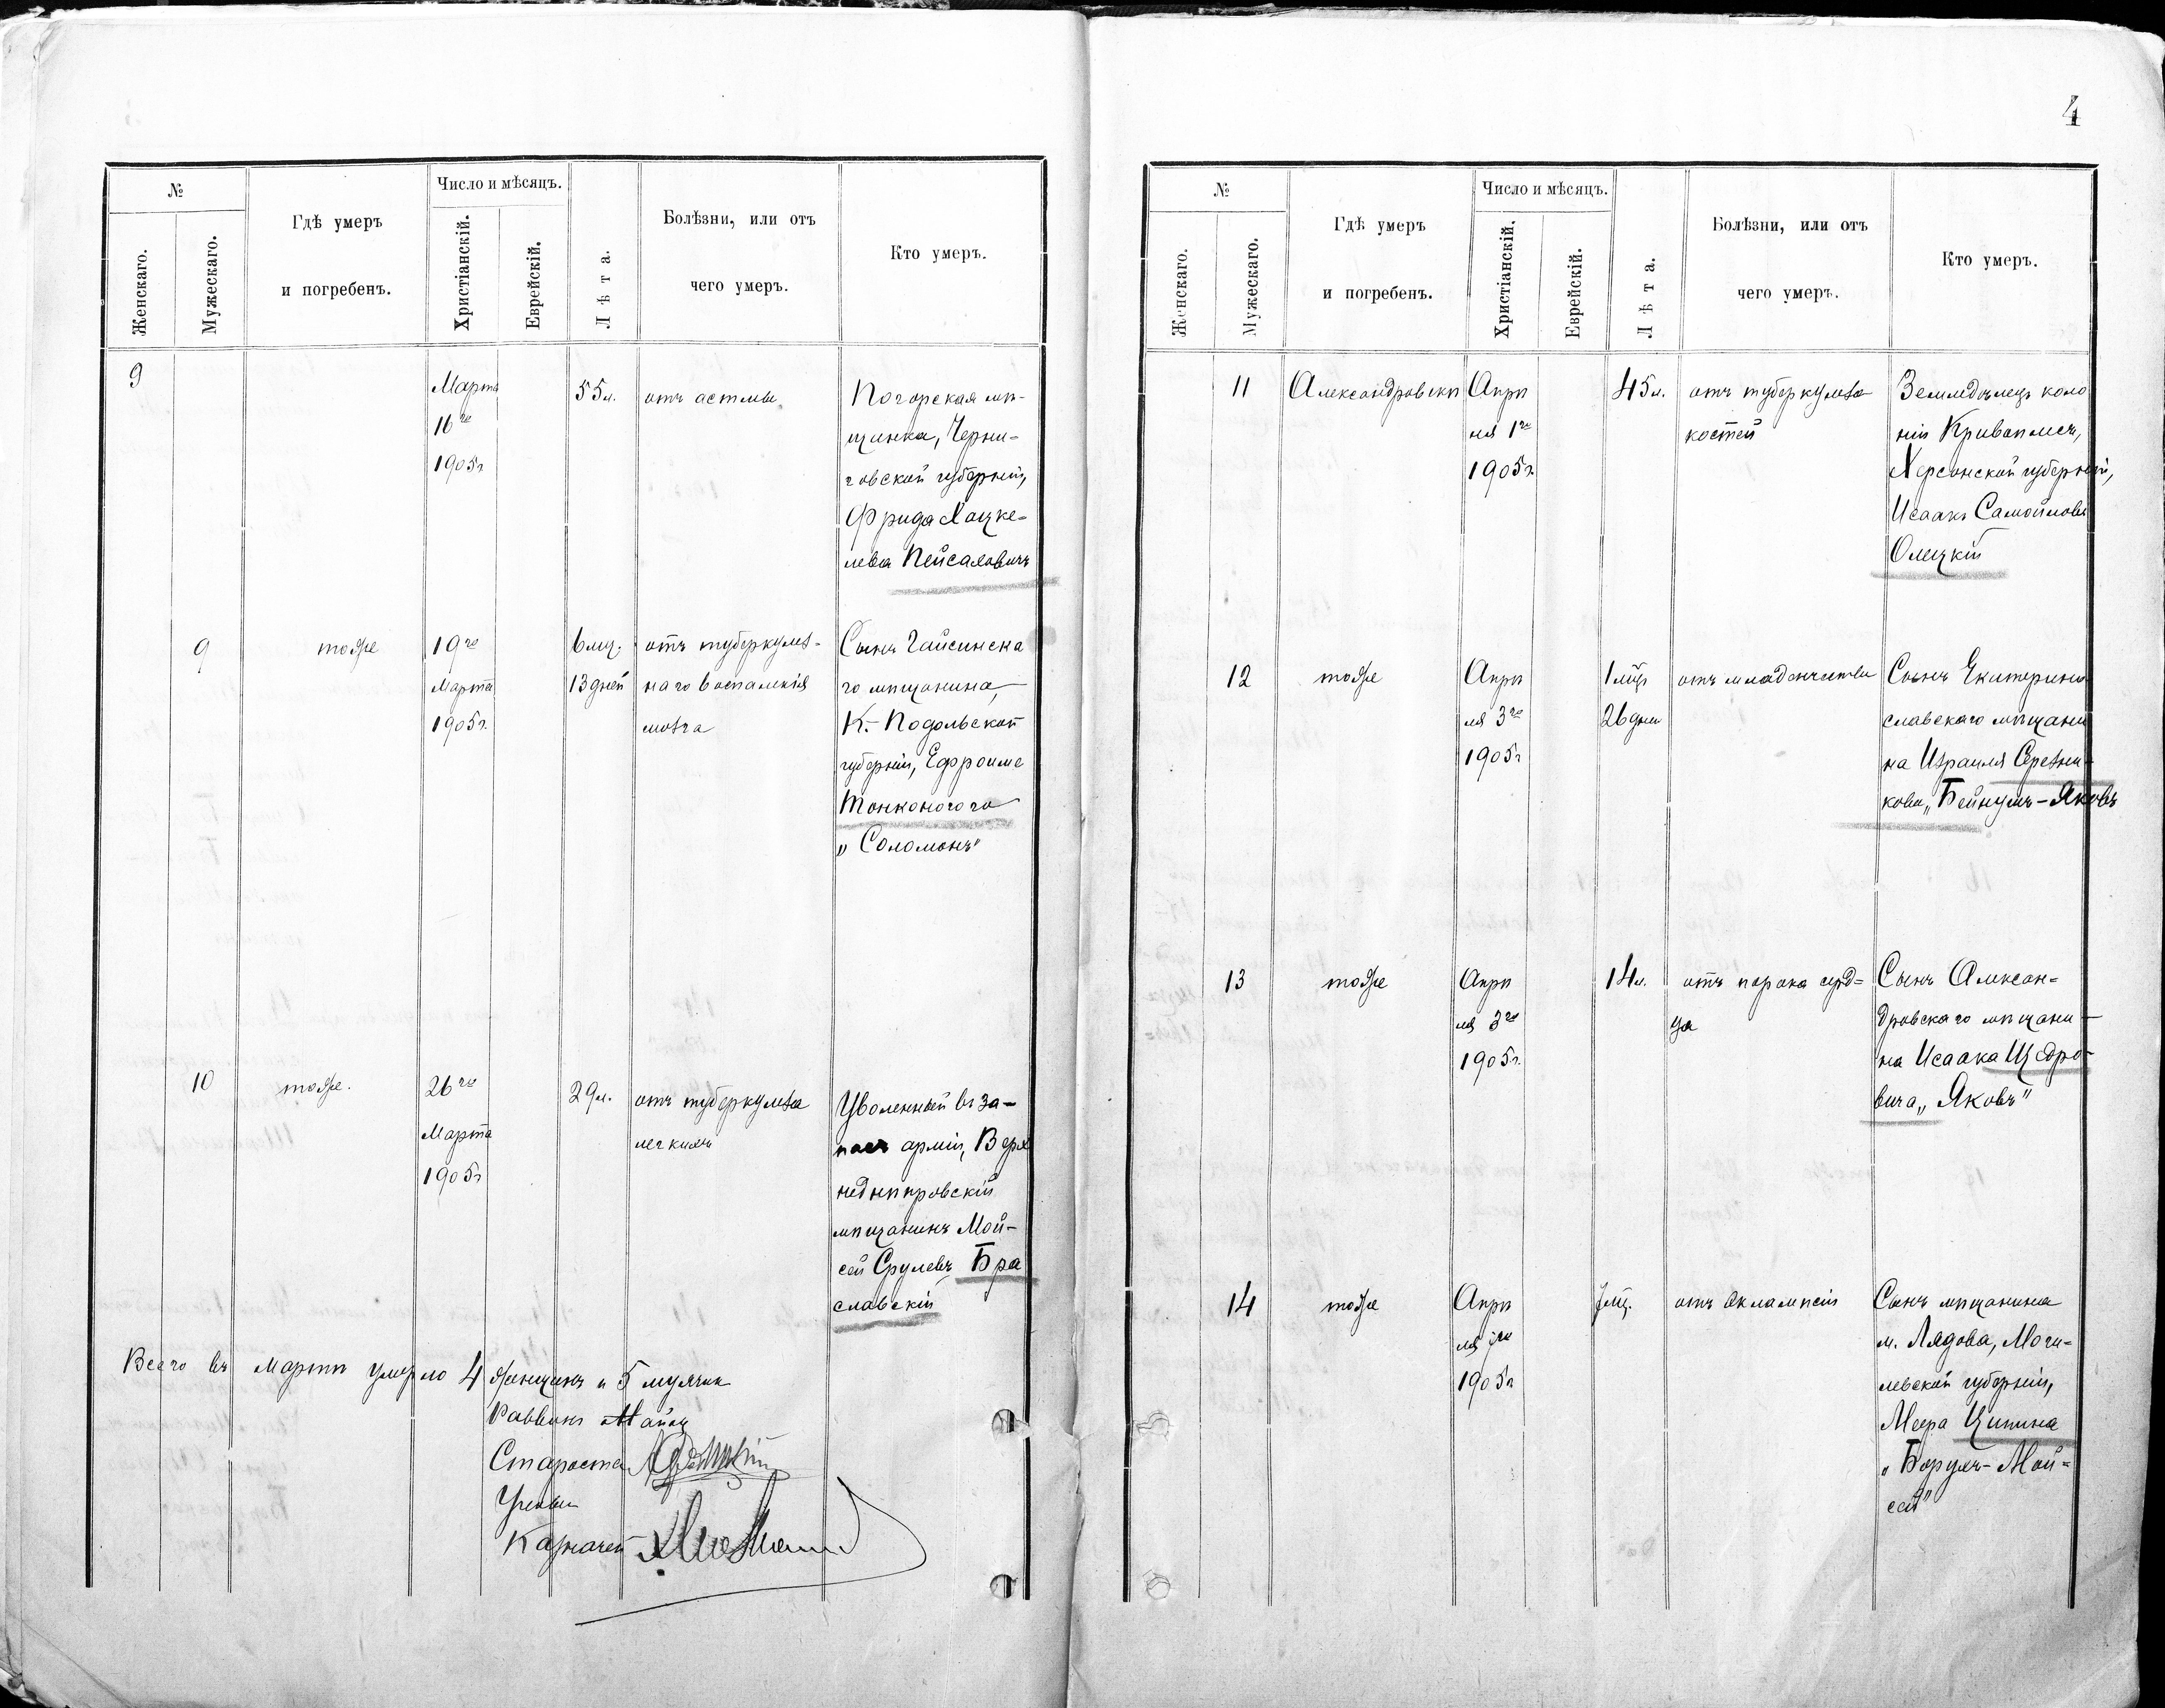 4
№
Число и мѣсяцъ.
Гдѣ умеръ
и погребенъ.
Болѣзни, или отъ
чего умеръ.
Кто умеръ.
Женскаго.
Мужескаго.
Христіанскій.
Еврейскій.
Лѣта.
9
Марта
16го
1905г.
55л.
отъ астмы
Погорская мѣ-
щанка, Черни-
говской губерніи,
Фрида Хацке-
лева Пейсаховичъ
9
тоже
19го
Марта
1905г.
6 мц.
13 дней
отъ туберкулез-
наго воспаленія
мозга
Сынъ Гайсинска
го мѣщанина,
К.-Подольской
губерніи, Ефроима
Тонконогого
„Соломонъ"
10
тоже.
26го
Марта
1905г
29л.
отъ туберкулеза
легкихъ
Уволенный въ за-
пасъ арміи, Верх
неднѣпровскій
мѣщанинъ Мой-
сей Срулевъ Бра
славскій
Всего въ Мартѣ умерло 4 женщинъ и 5 мужчин
Раввинъ
Староста
Ученый
Казначей
№
Число и мѣсяцъ.
Гдѣ умеръ
и погребенъ.
Болѣзни, или отъ
чего умеръ.
Кто умеръ.
Женскаго.
Мужескаго.
Христіанскій.
Еврейскій.
Лѣта.
11
Александровскъ
Апрѣ
ля 1го
1905г.
45л.
отъ туберкулеза
костей
Земледѣлецъ коло
ніи
Херсонской губерніи,
Исаакъ Самойловъ
Олецкій
12
тоже
Апрѣ
ля 3го
1905г
1 мцъ
26 дни
отъ младенчества
Сынъ Екатерино
славскаго мѣщани
на Израиля Срезни-
кова „Бейнумъ-Яковъ
13
тоже
Апрѣ
ля 3го
1905г.
14л.
отъ порока серд-
ца
Сынъ Алексан-
дровскаго мѣщани-
на Исаака Щедро-
вича „Яковъ"
14
тоже
Апрѣ
ля 7го
1905г
7 мц.
отъ эклампсіи
Сынъ мѣщанина
м. Лядова, Моги-
левской губерніи,
Меера Ципина
„Борухъ-Мой-
сей"